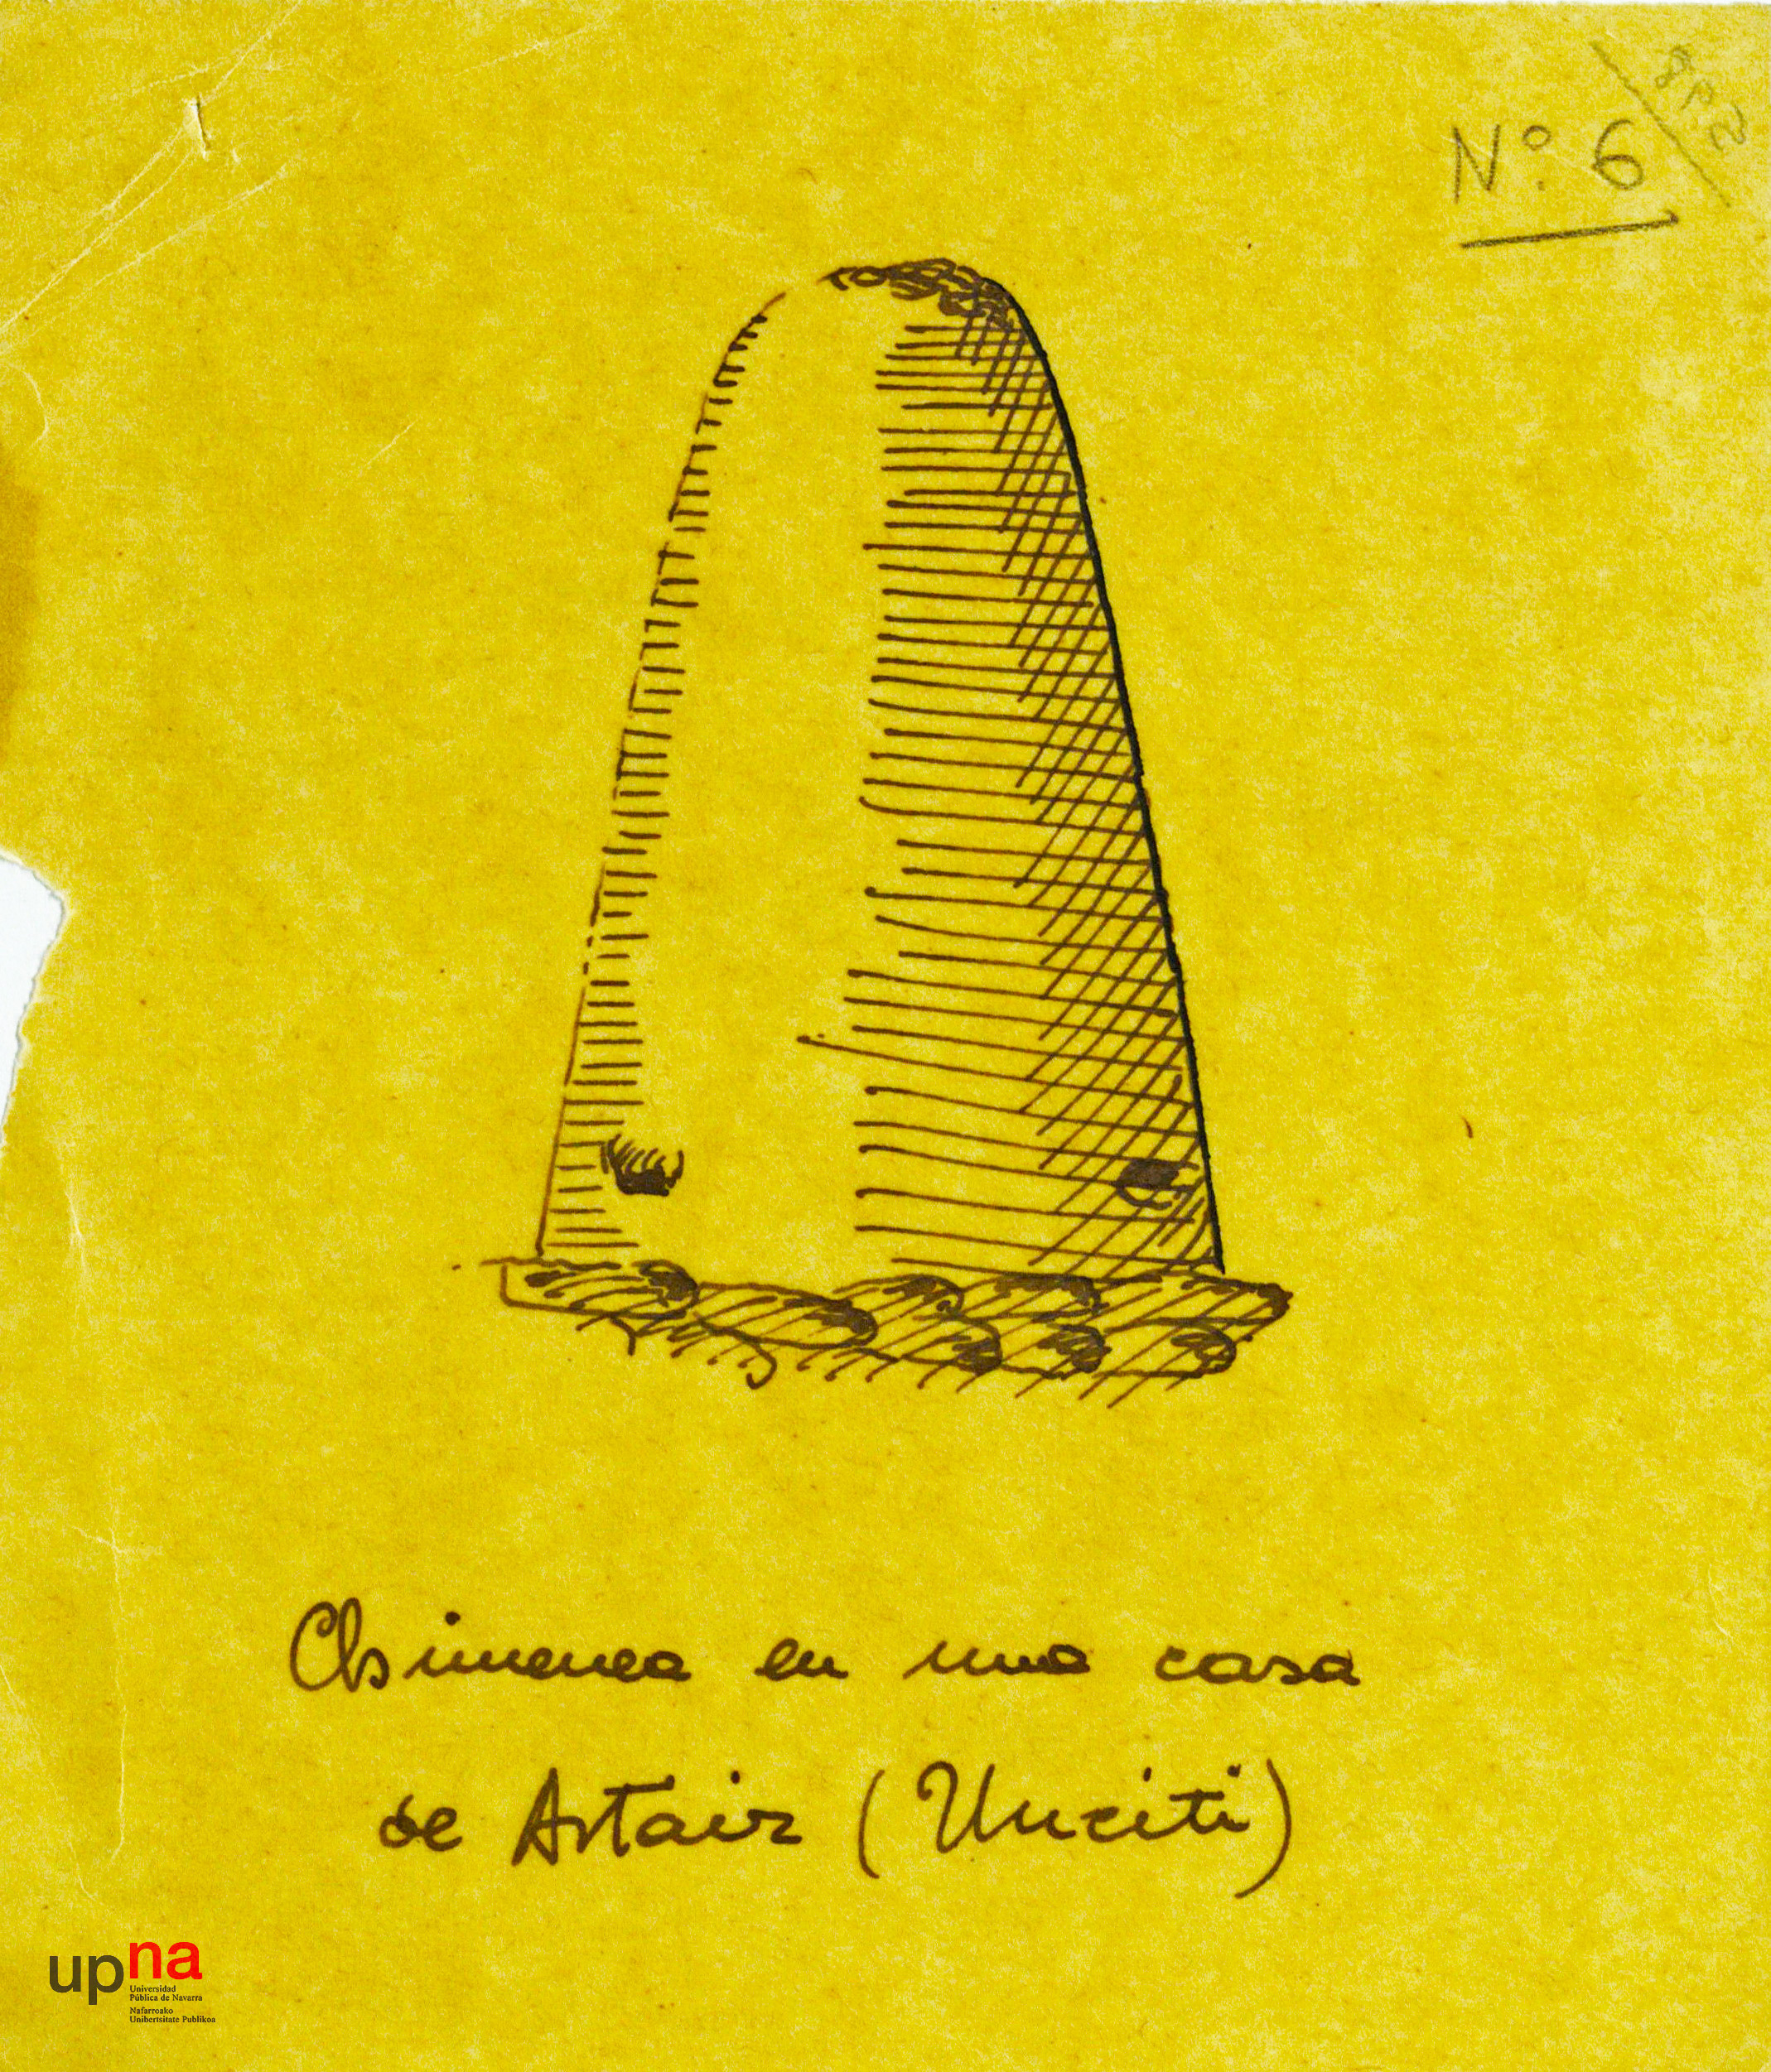 Nº. 6
Chimenea en una casa
de Artaiz (Unciti)
upna
Universidad
Pública de Navarra
Nafarroako
Unibertsitate Publikoa